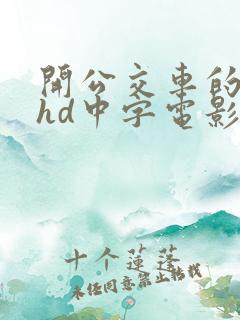 開公交車的
hd中字電影
十个蓮蓬
未经同意禁止转载